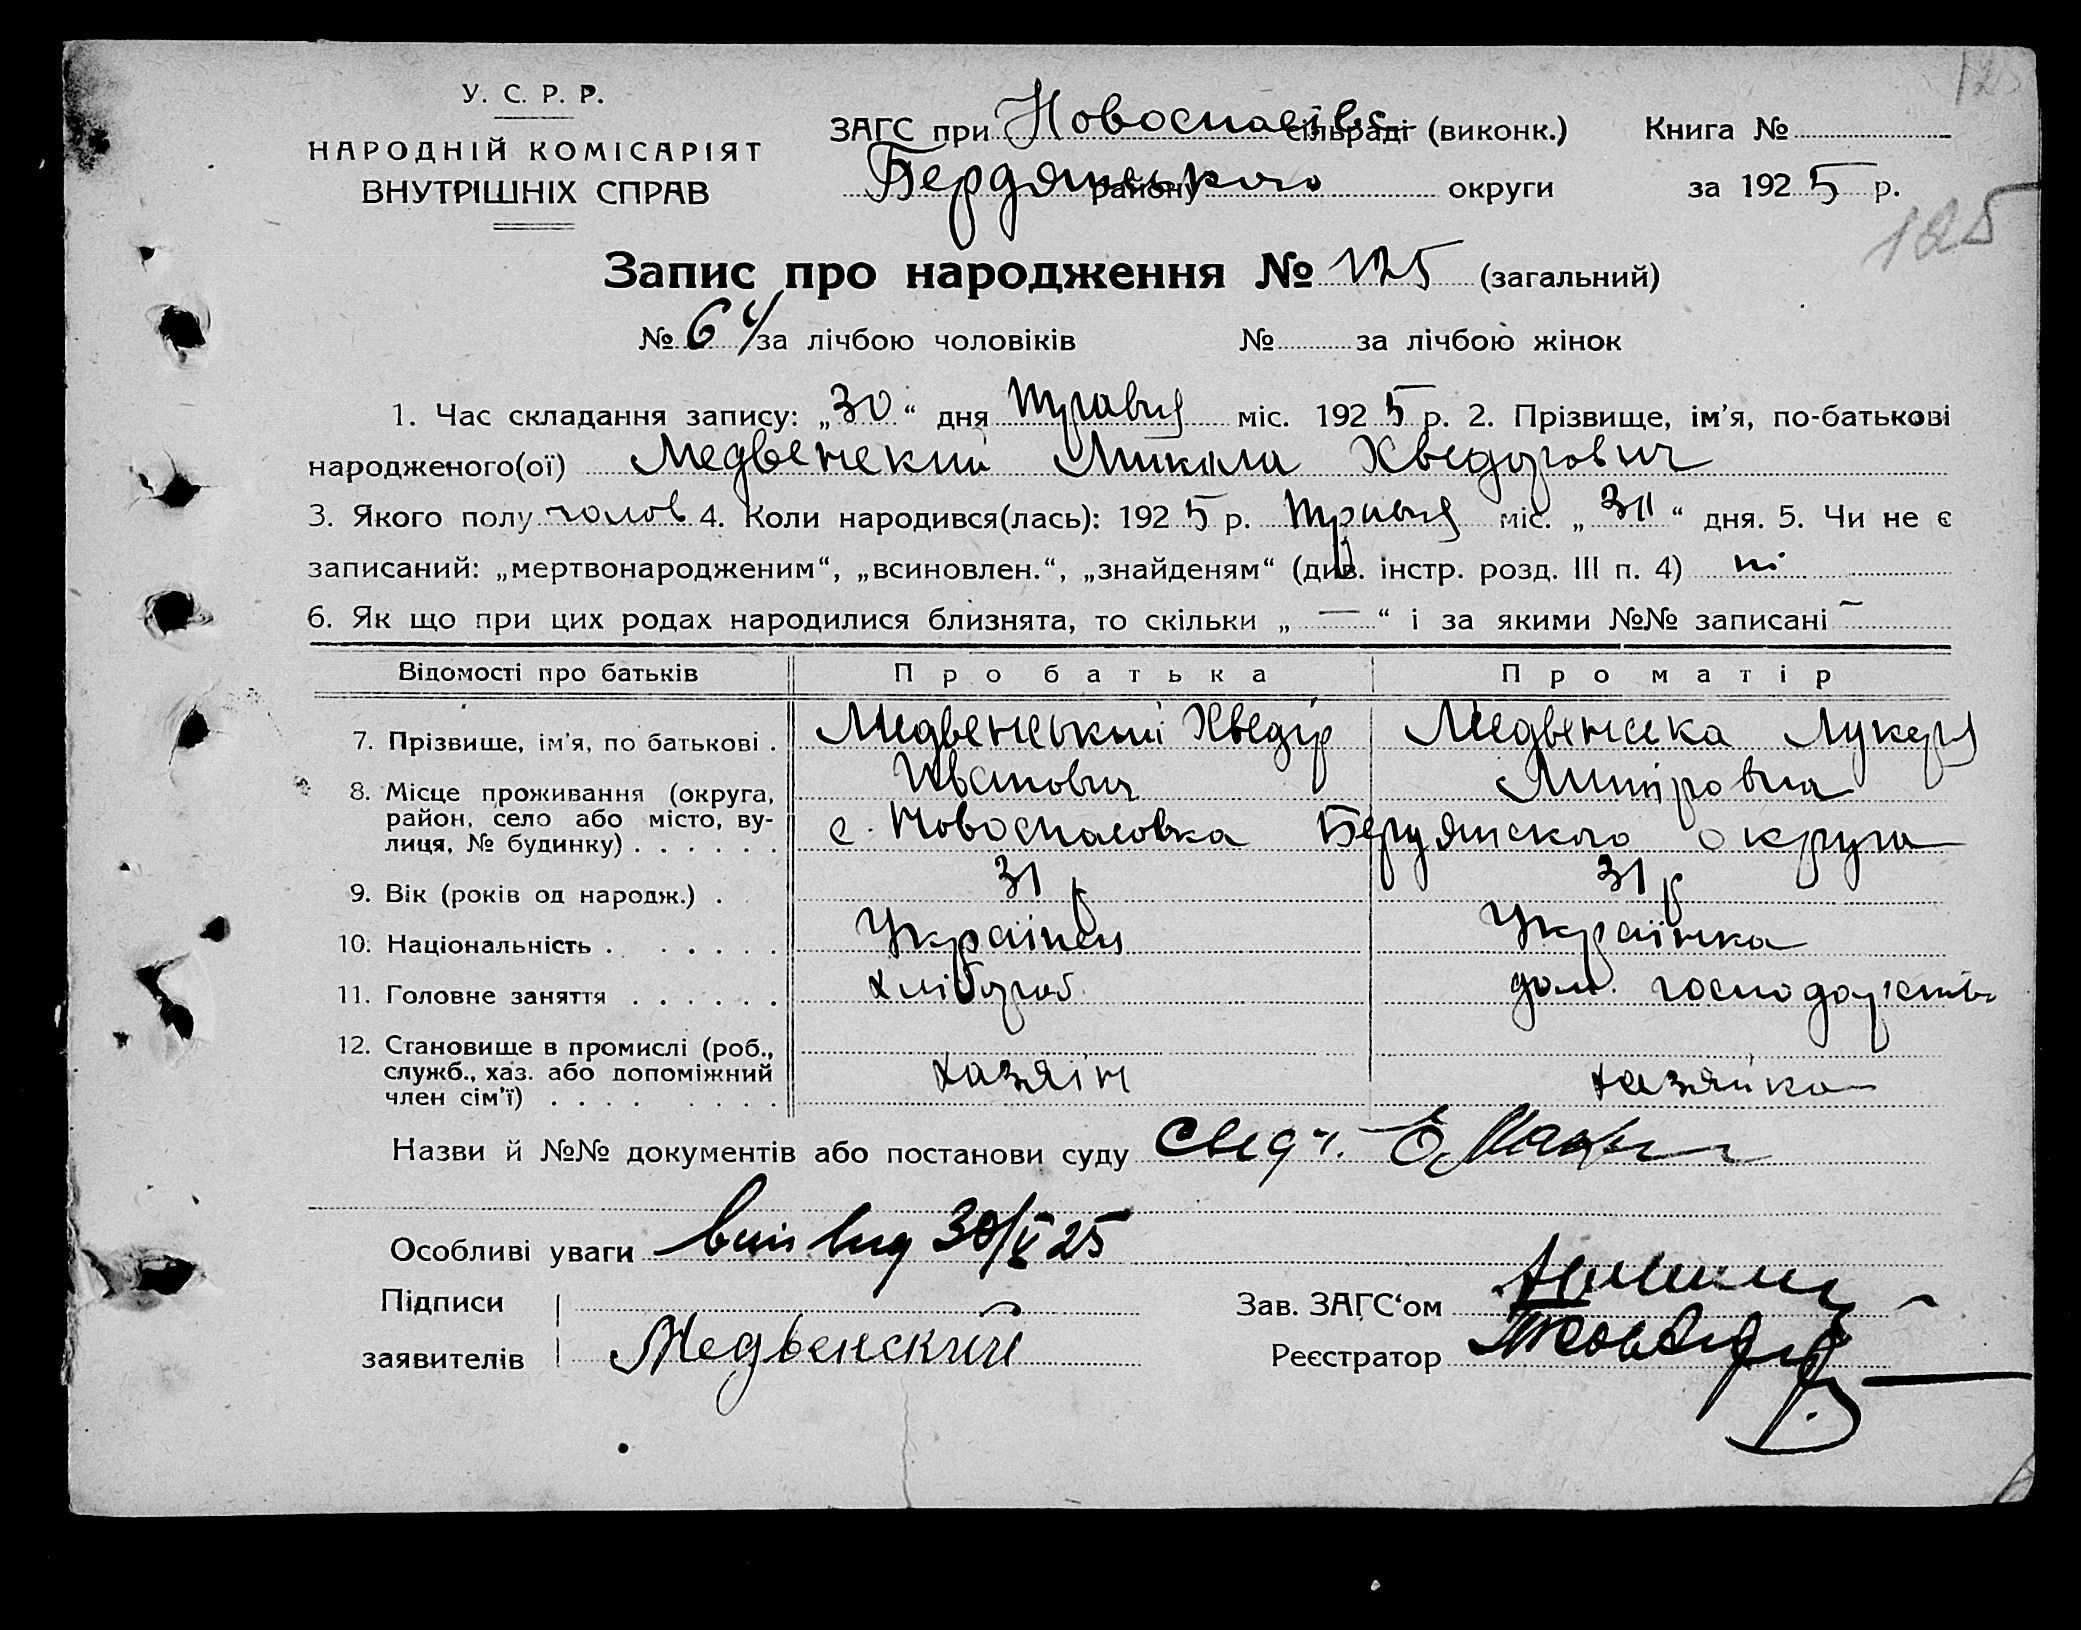 125
У. С. Р. Р.
НАРОДНІЙ КОМІСАРІЯТ
ВНУТРІШНІХ СПРАВ
ЗАГС при Новоспасівс сільраді (виконк.) Книга №
Бердянського району округи за 1925 р.
125
Запис про народження № 125 (загальний)
№ 64 за лічбою чоловіків № за лічбою жінок
1. Час складання запису: „30“ дня Травня міс. 1925 р. 2. Прізвище, ім'я, по-батькові
народженого(ої) Медвенский Микола Хведорович
3. Якого полу чолов 4. Коли народився(лась): 1925 р. Травня міс. „ “ дня. 5. Чи не є
записаний: „мертвонародженим“, „всиновлен.“, „знайденям“ (див. інстр. розд. III п. 4) ні
6. Як що при цих родах народилися близнята, то скільки „—“ і за якими №№ записані —
Відомості про батьків Про батька Про матір
7. Прізвище, ім'я, по батькові . Медвенський Хведір Медвенська Лукеря
Иванович Митровна
8. Місце проживання (округа,
район, село або місто, ву-
лиця, № будинку) . . . . . . с. Новоспасовка Бердянского округа
9. Вік (років од народж.) . 31 р 31 р
10. Національність . . . . . . Українец Українка
11. Головне заняття . . . . . . хлібороб дом. господарство
12. Становище в промислі (роб.,
служб., хаз. або допоміжний
член сім'ї) . . . . . . . . хазяїн хазяйка
Назви й №№ документів або постанови суду свед.
Особливі уваги 30/V 25
Підписи
заявителів Медвенский
Зав. ЗАГС'ом
Реєстратор